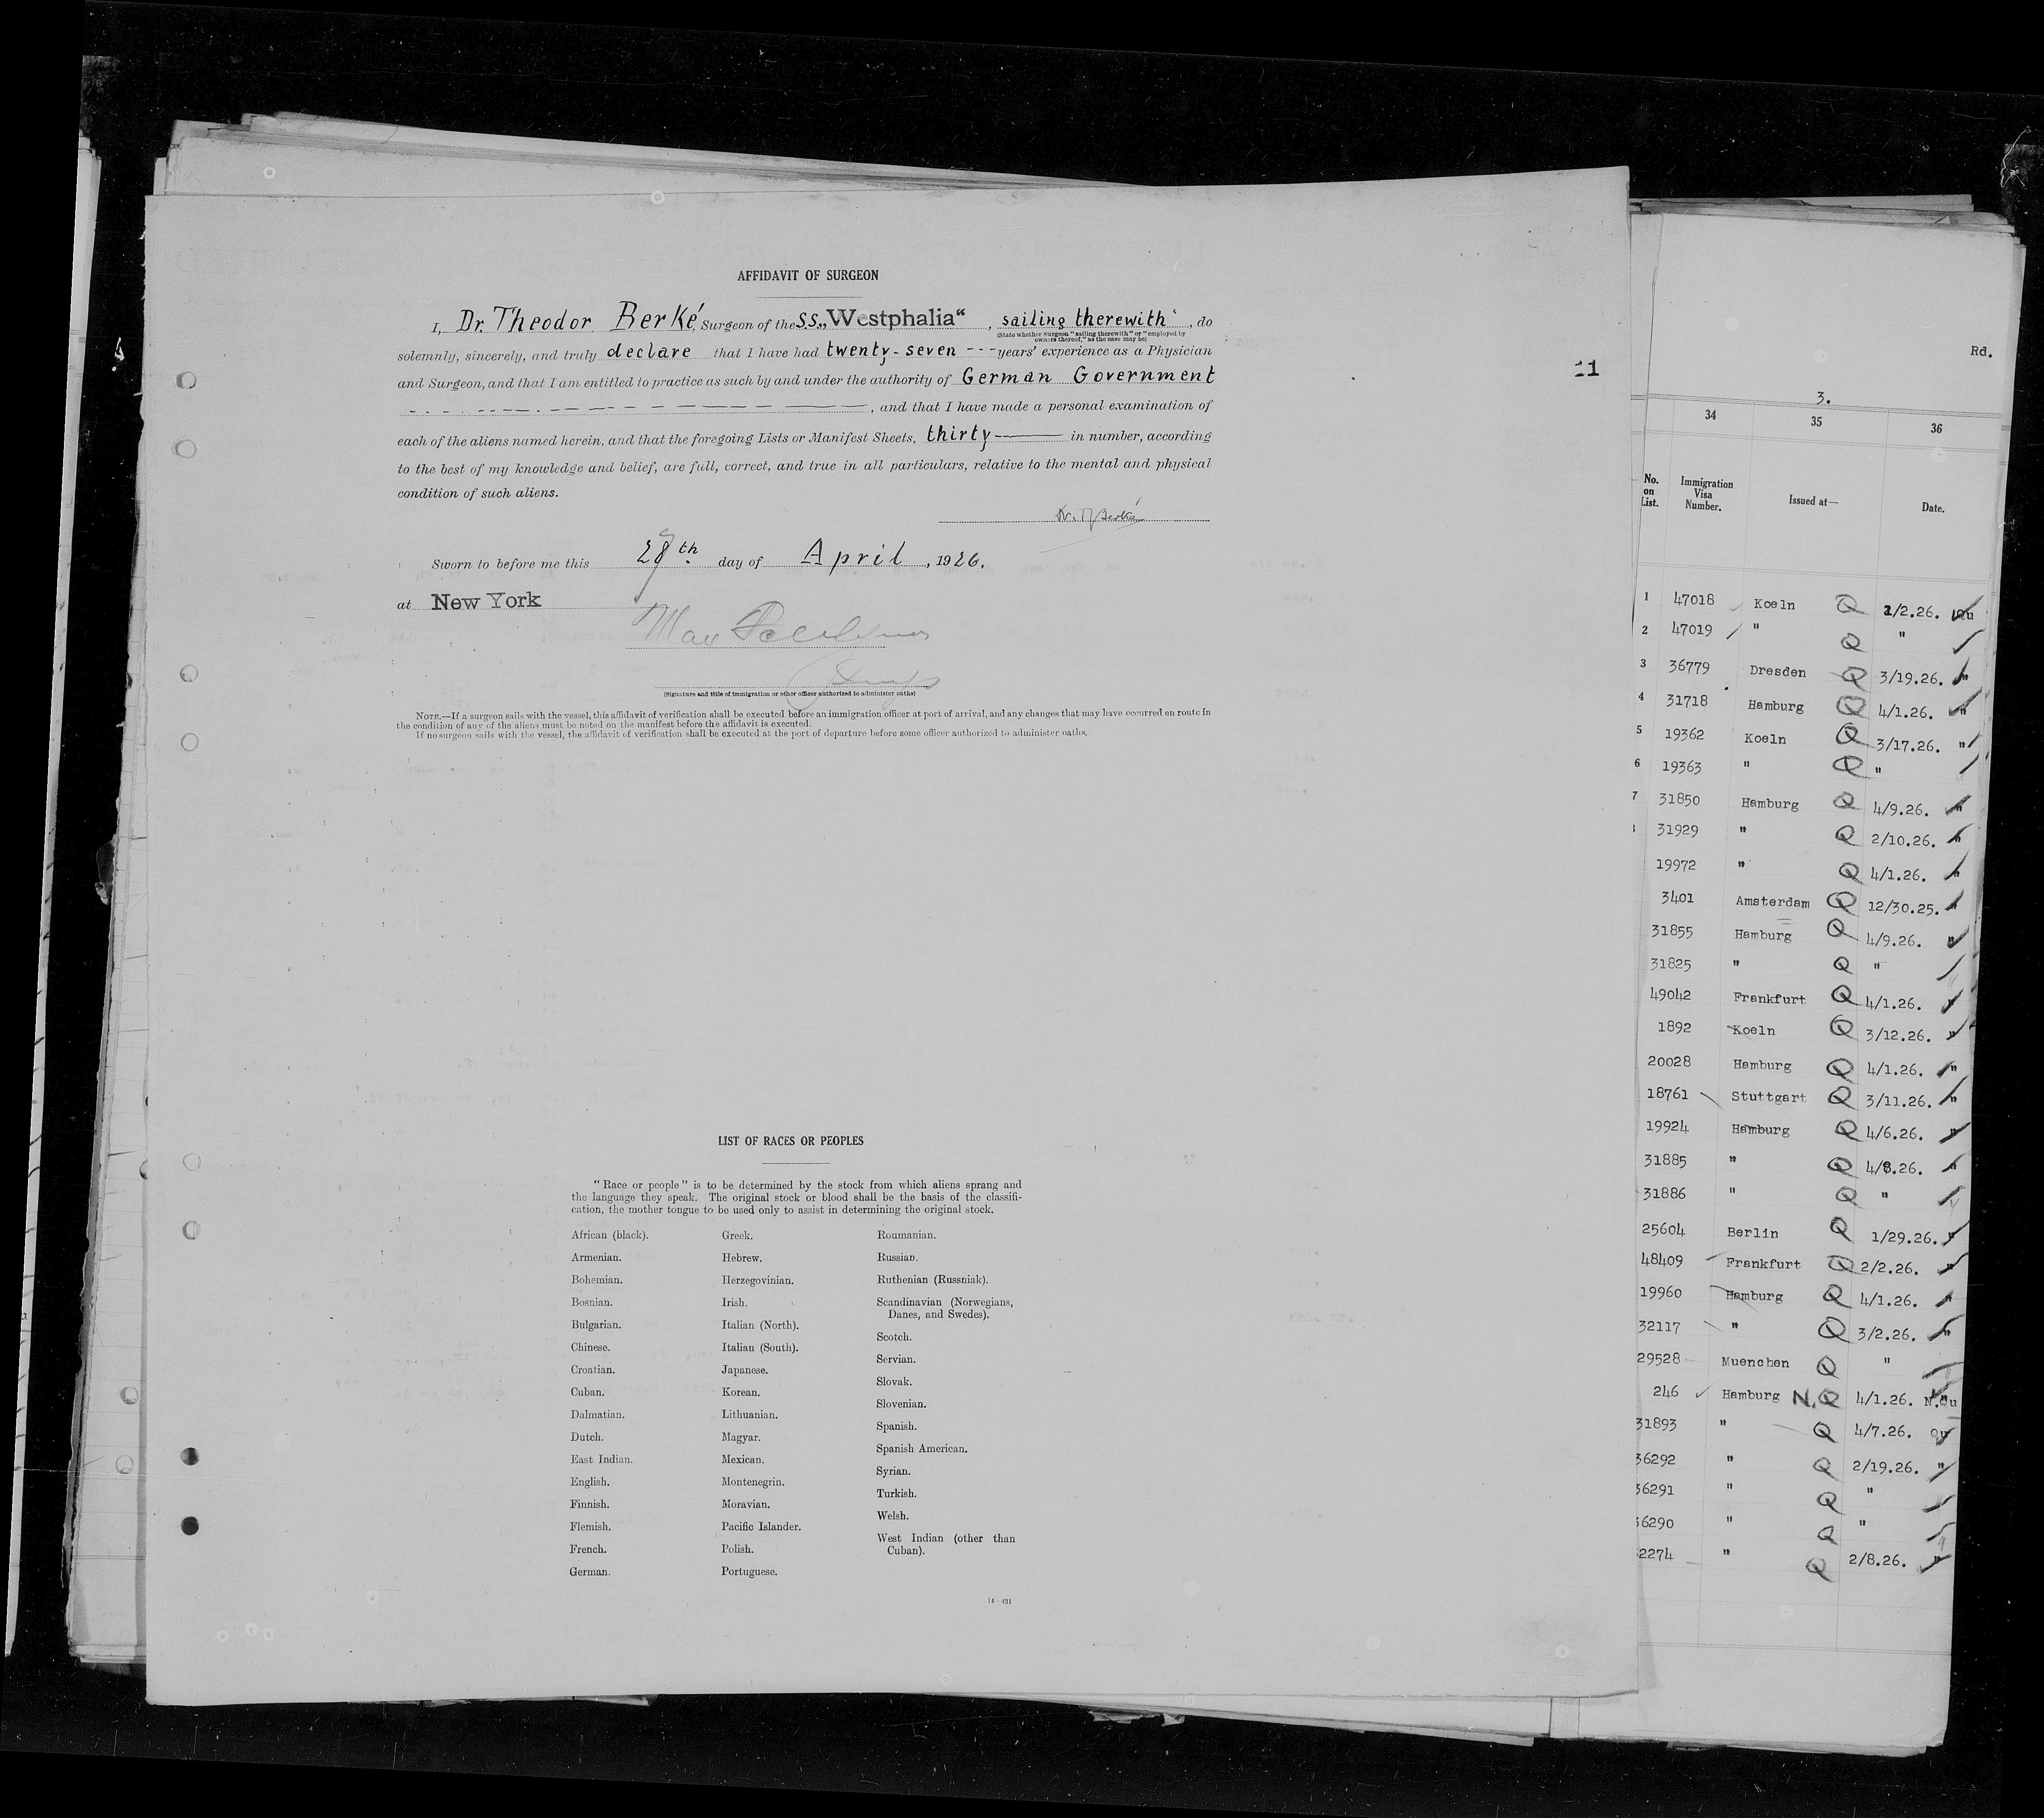 AFFIDAVIT OF SURGEON
I, Dr. Theodor Berké, Surgeon of the S.S. „Westphalia“, sailing therewith, do
(State whether Surgeon "sailing therewith" or "employed by
owners thereof," as the case may be)
solemnly, sincerely, and truly declare that I have had twenty-seven --- years' experience as a Physician
and Surgeon, and that I am entitled to practice as such by and under the authority of German Government
, and that I have made a personal examination of
each of the aliens named herein, and that the foregoing Lists or Manifest Sheets, thirty in number, according
to the best of my knowledge and belief, are full, correct, and true in all particulars, relative to the mental and physical
condition of such aliens.
Dr. Th Berké
Sworn to before me this 28th day of April, 1926.
at New York
Max
(Signature and title of immigration or other officer authorized to administer oaths)
NOTE.—If a surgeon sails with the vessel, this affidavit of verification shall be executed before an immigration officer at port of arrival, and any changes that may have occurred en route in
the condition of any of the aliens must be noted on the manifest before the affidavit is executed.
If no surgeon sails with the vessel, the affidavit of verification shall be executed at the port of departure before some officer authorized to administer oaths.
11
LIST OF RACES OR PEOPLES
"Race or people" is to be determined by the stock from which aliens sprang and
the language they speak. The original stock or blood shall be the basis of the classifi-
cation, the mother tongue to be used only to assist in determining the original stock.
African (black).
Armenian.
Bohemian.
Bosnian.
Bulgarian.
Chinese.
Croatian.
Cuban.
Dalmatian.
Dutch.
East Indian.
English.
Finnish.
Flemish.
French.
German.
Greek.
Hebrew.
Herzegovinian.
Irish.
Italian (North).
Italian (South).
Japanese.
Korean.
Lithuanian.
Magyar.
Mexican.
Montenegrin.
Moravian.
Pacific Islander.
Polish.
Portuguese.
Roumanian.
Russian.
Ruthenian (Russniak).
Scandinavian (Norwegians,
Danes, and Swedes).
Scotch.
Servian.
Slovak.
Slovenian.
Spanish.
Spanish American.
Syrian.
Turkish.
Welsh.
West Indian (other than
Cuban).
14—431
Rd.
3.
34 35 36
No. on List. Immigration Visa Number. Issued at— Date.
1 47018 Koeln Q 2/2.26. Qu
2 47019 " Q "
3 36779 Dresden Q 3/19.26. "
4 31718 Hamburg Q 4/1.26. "
5 19362 Koeln Q 3/17.26. "
6 19363 " Q "
7 31850 Hamburg Q 4/9.26. "
31929 " Q 2/10.26. "
19972 " Q 4/1.26. "
3401 Amsterdam Q 12/30.25. "
31855 Hamburg Q 4/9.26. "
31825 " Q "
49042 Frankfurt Q 4/1.26. "
1892 Koeln Q 3/12.26. "
20028 Hamburg Q 4/1.26. "
18761 Stuttgart Q 3/11.26. "
19924 Hamburg Q 4/6.26. "
31885 " Q 4/8.26. "
31886 " Q "
25604 Berlin Q 1/29.26. "
48409 Frankfurt Q 2/2.26. "
19960 Hamburg Q 4/1.26. "
32117 " Q 3/2.26. "
29528 Muenchen Q "
246 Hamburg N.Q 4/1.26. N.Qu
31893 " Q 4/7.26. Qu
36292 " Q 2/19.26. "
36291 " Q "
36290 " Q "
2274 " Q 2/8.26. "